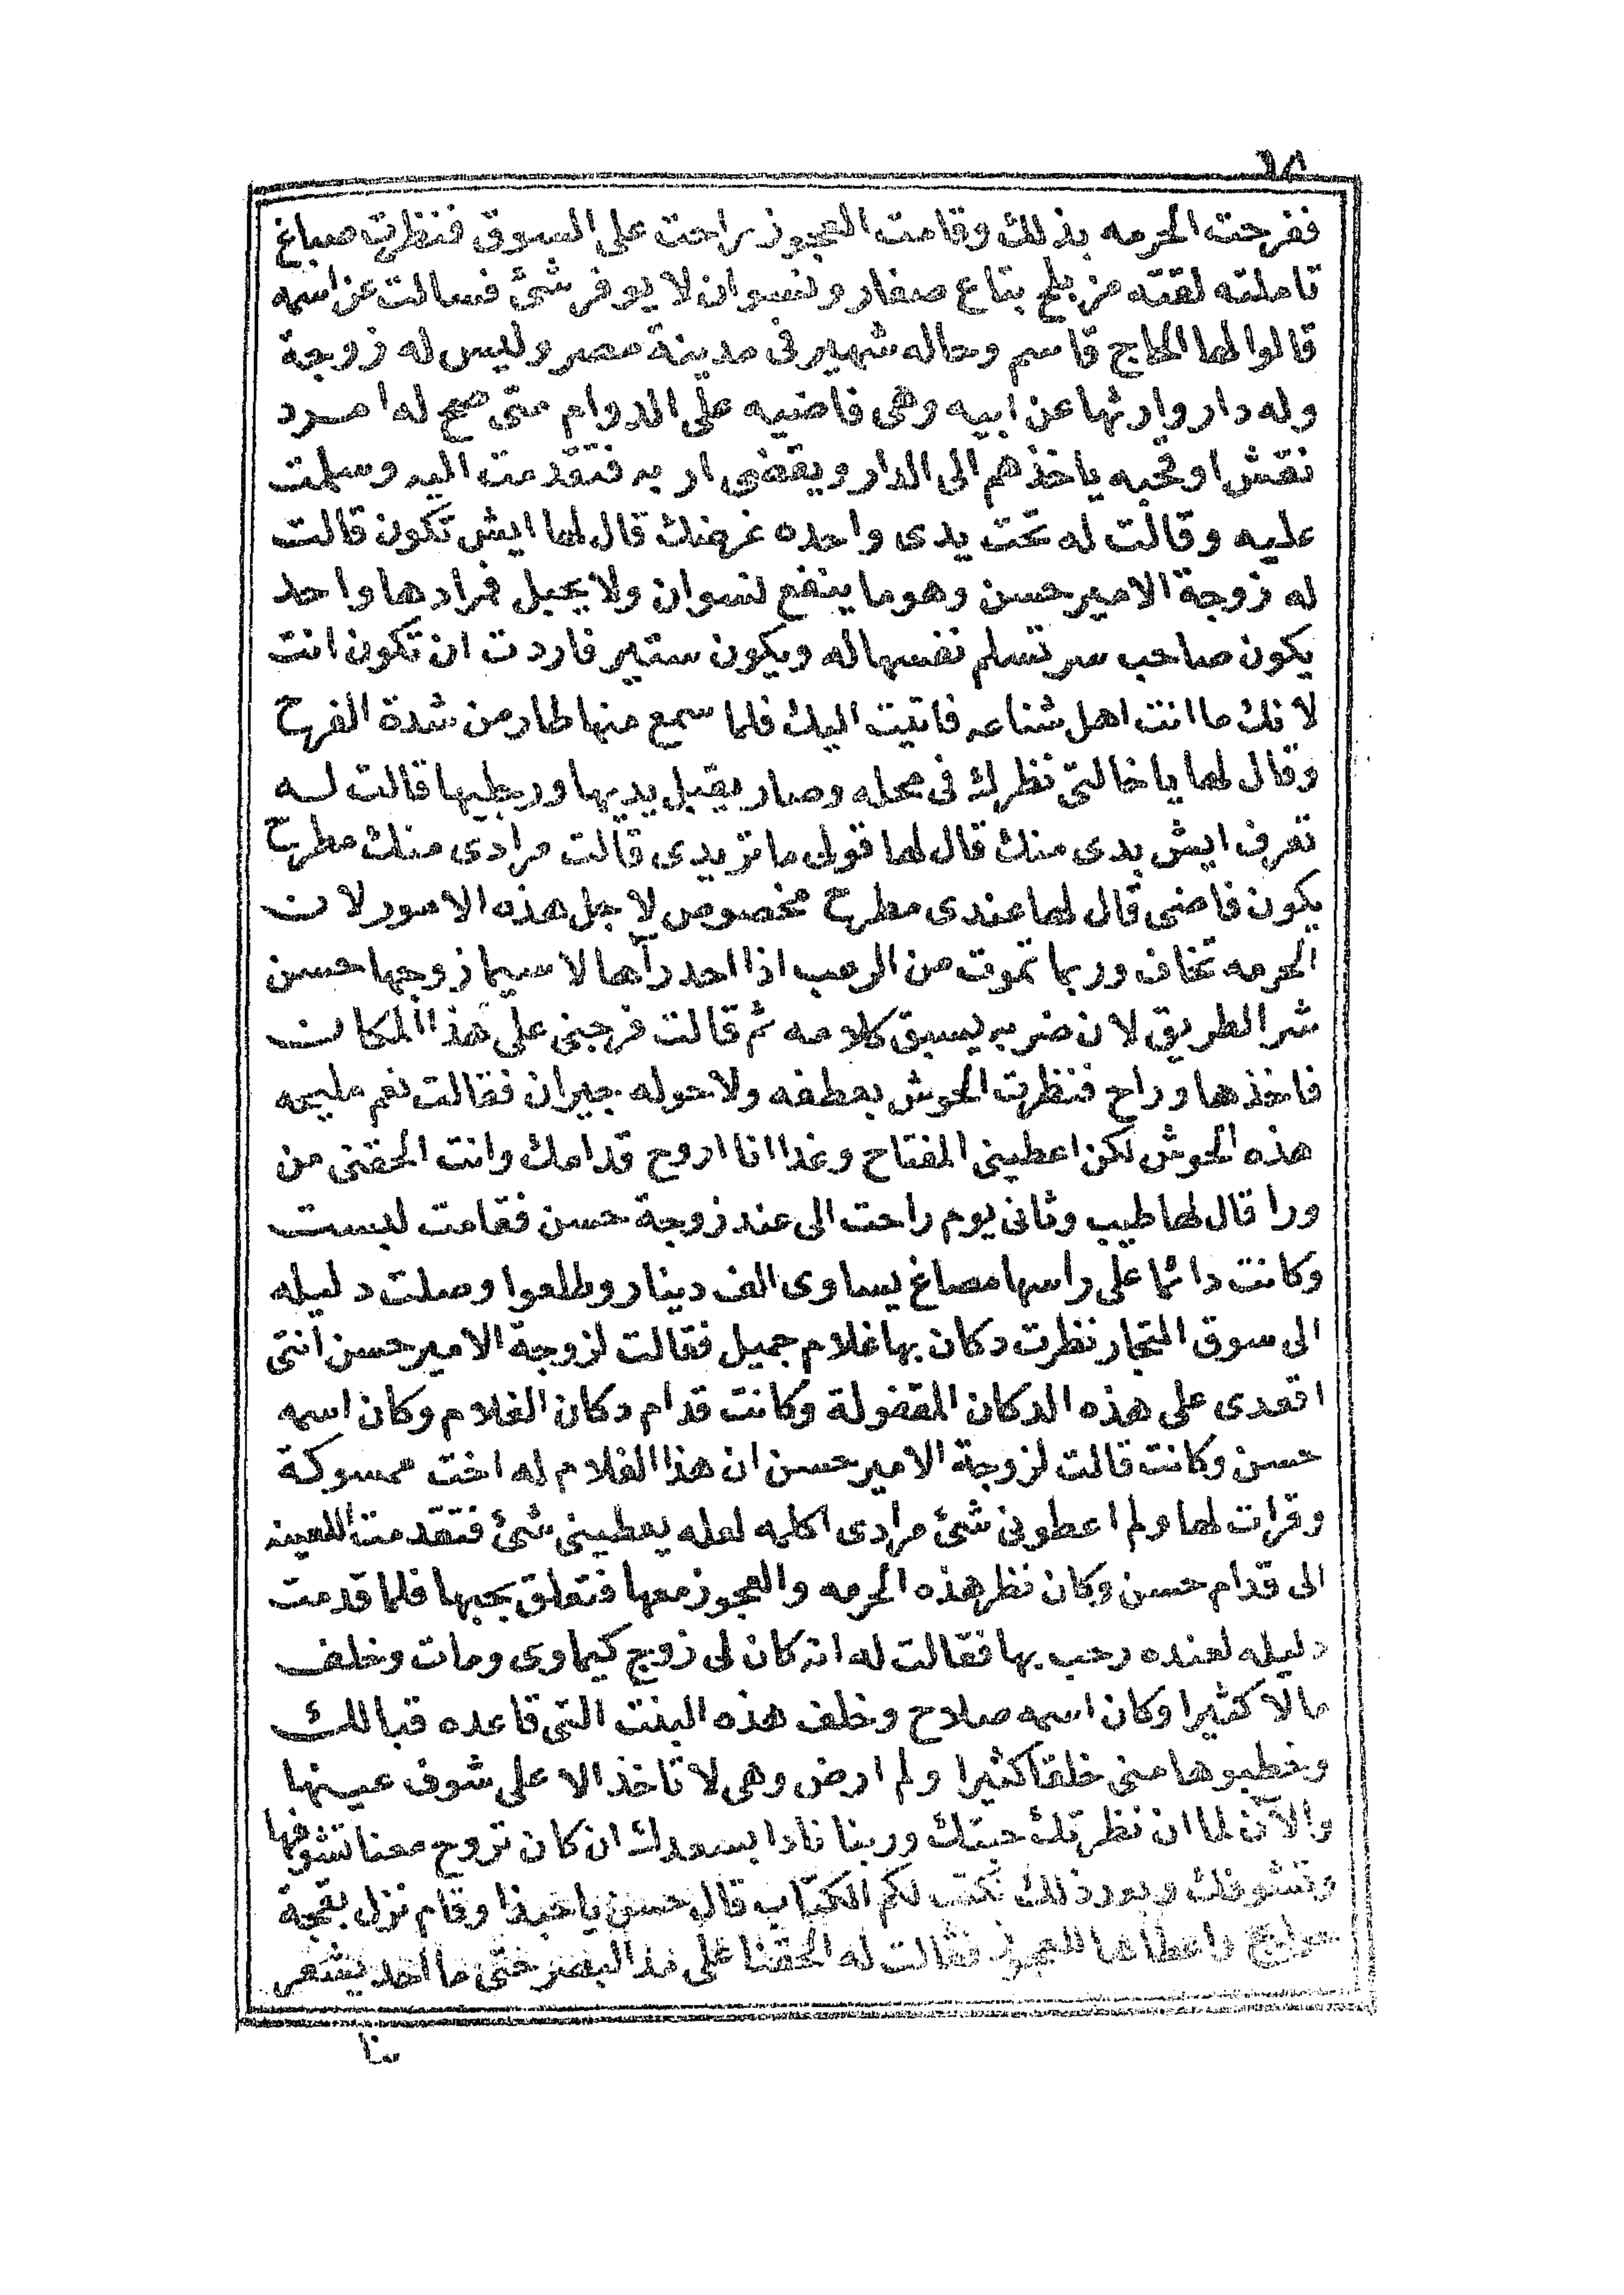 ففرحت الحرمه بذلك وقامت العجوز راحت على السوق فنظرت صباغ
تاملته لقته مزبلح بتاع صغار ونسوان لا يوفر شئ فسالت عن اسمه
قالوا لها الحاج قاسم وحاله شهير فى مدينة مصر وليس له زوجة
وله دار وارثها عن ابيه وهى فاضيه على الدوام متى صح له امرد
نقش او قحبه ياخذهم الى الدار ويقضى اربه فتقدمت اليه وسلمت
عليه وقالت له تحت يدى واحده غرضك قال لها ايش تكون قالت
له زوجة الامير حسن وهو ما ينفع نسوان ولا يحبل فمرادها واحد
يكون صاحب سر تسلم نفسها له ويكون ستير فاردت ان تكون انت
لانك ما انت اهل شناعه فاتيت اليك فلما سمع منها طار من شدة الفرح
وقال لها يا خالتى نظرك فى محله وصار يقبل يديها ورجليها قالت له
تعرف ايش بدى منك قال لها قولى ما تريدى قالت مرادى منك مطرح
يكون فاضى قال لها عندى مطرح مخصوص لاجل هذه الامور لان
الحرمه تخاف وربما تموت من الرعب اذا احد رآها لا سيما زوجها حسن
شر الطريق لان ضربه يسبق كلامه ثم قالت فرجنى على هذا المكان
فاخذها وراح فنظرت الحوش بعطفه ولا حوله جيران فقالت نعم مليحه
هذه الحوش لكن اعطينى المفتاح وغدا انا اروح قدامك وانت الحقنى من
ورا قال لها طيب وثانى يوم راحت الى عند زوجة حسن فقامت لبست
وكانت دائما على راسها مصاغ يساوى الف دينار وطلعوا وصلت دليله
الى سوق التجار نظرت دكان بها غلام جميل فقالت لزوجة الامير حسن انتى
اقعدى على هذه الدكان المقفولة وكانت قدام دكان الغلام وكان اسمه
حسن وكانت قالت لزوجة الامير حسن ان هذا الغلام له اخت ممسوكة
وقرات لها ولم اعطونى شئ مرادى اكلمه لعله يعطينى شئ فتقدمت اللعينه
الى قدام حسن وكان نظر هذه الحرمه والعجوز معها فتعلق بحبها فلما قدمت
دليله لعنده رحب بها فقالت له انه كان لى زوج كيماوى ومات وخلف
مالا كثيرا وكان اسمه صلاح وخلف هذه البنت التى قاعده قبالك
وخطبوها منى خلقا كثيرا ولم ارض وهى لا تاخذ الا على شوف عينها
والآن لما ان نظرتك حبتك وربنا نادا بسعدك ان كان تروح معنا تشوفها
وتشوفك وبعد ذلك نكتب لكم الكتاب قال حسن يا حبذا وقام نزل بقجة
حوايج واعطاها للعجوز فقالت له الحقنا على مد البصر حتى ما احد يشعر
بنا